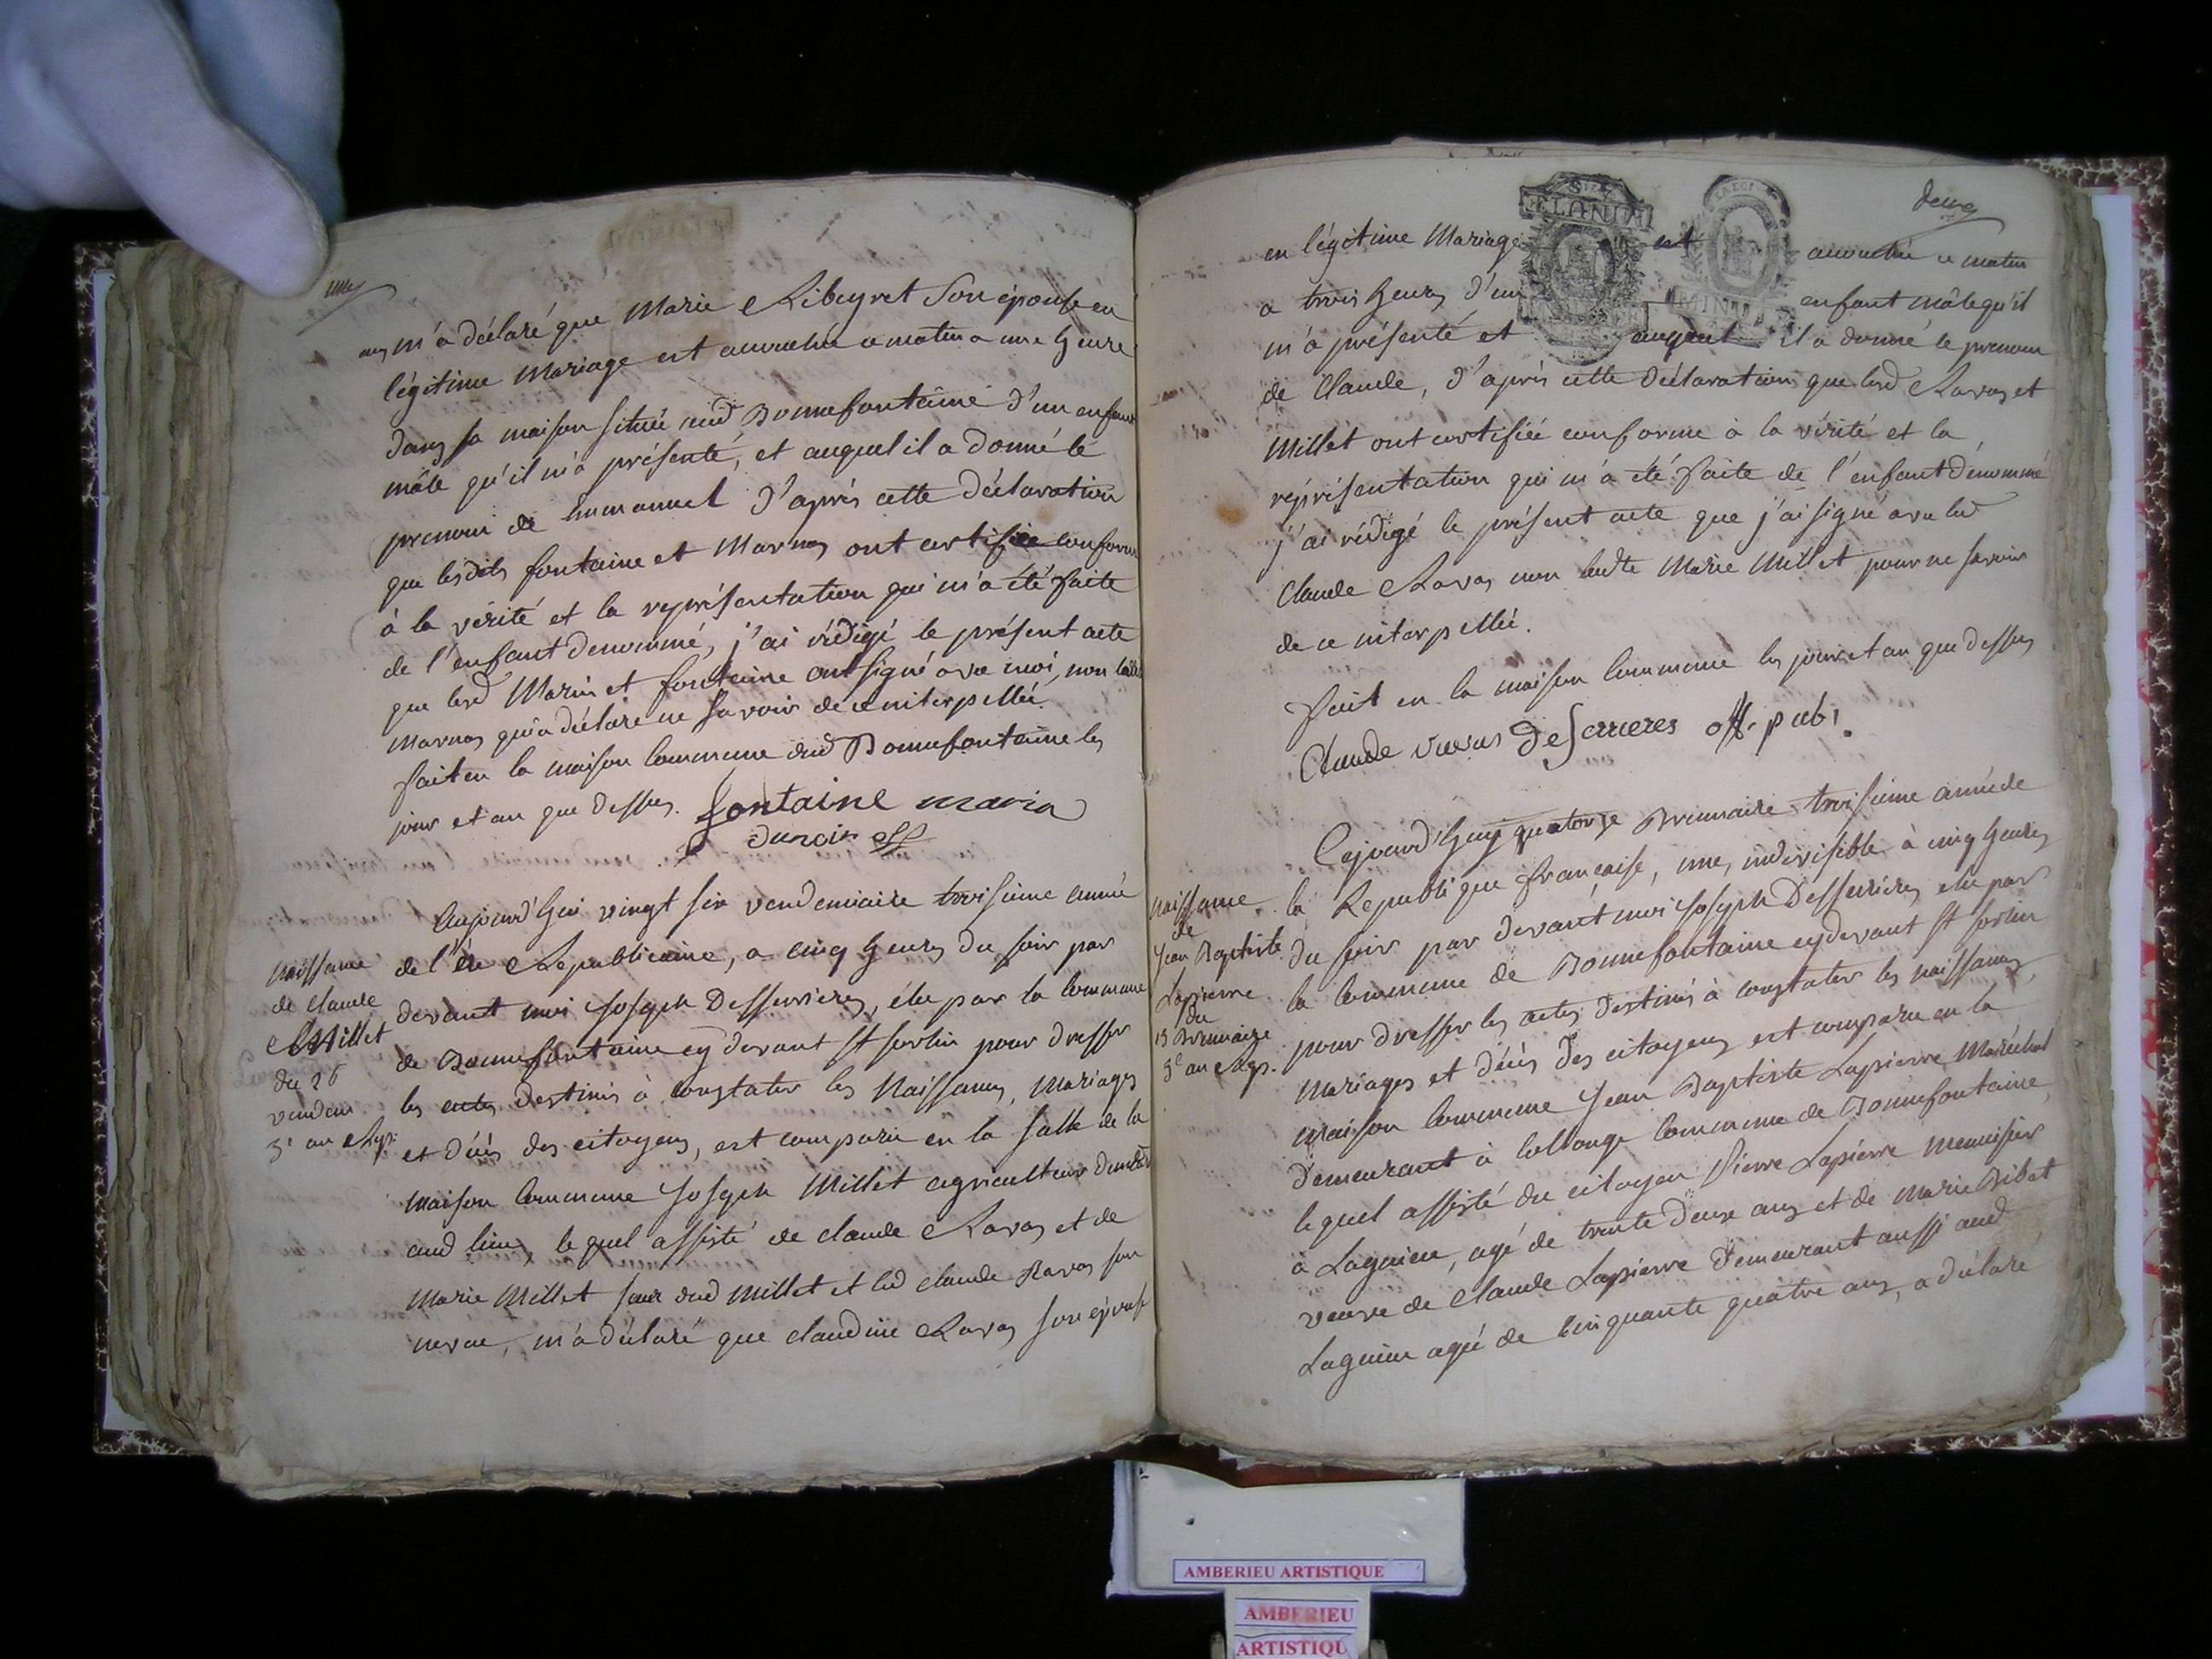 m'a déclaré que Marie Ribeyret Son épouse en
légitime Mariage est accouchée ce matin a une heure
dans sa maison située aud Bonnefontaine d'un enfant
mâle qu'il m'a présenté, et auquel il a donné le
prenom de Emmanuel d'après cette déclaration
que lesdits fontaine et Marnas ont certifiée conforme
à la vérité et la représentation qui m'a été faite
de l'enfant denommé, j'ai rédigé le présent acte
que lesd Marin et fontaine ont signé avec moi, non
Marnas qui a déclaré ne savoir de ce interpellée.
fait en la maison Commune dud Bonnefontaine les
jour et an que dessus. fontaine marin
Aujourd'hui vingt six vendemiaire troisieme année
de l'ère Republicaine, a cinq heures du soir par
devant moi Joseph Desserrieres, élu par la Commune
de Bonnefontaine cy devant St Sorlin pour dresser
les actes destinés à constater les Naissances, Mariages
et décès des citoyens, est comparu en la salle de la
Maison Commune Joseph Millet agriculteur
aud lieu, lequel assisté de claude Ravas et de
Marie Millet sœur dud Millet et led claude Ravas son
neveu, m'a déclaré que claudine Ravas son épouse
Naissance
de claude
Millet
du 26
vendem
3e an Rep.
deux
en légitime Mariage est accouchée ce matin
a trois heures d'un enfant mâle qu'il
m'a présenté et auquel il a donné le prenom
de Claude, d'après cette déclaration que lesd Ravas et
Millet ont certifiée conforme à la vérité et la
représentation qui m'a été faite de l'enfant dénommé
j'ai rédigé le présent acte que j'ai signé avec led
Claude Ravas non ladte Marie Millet pour ne savoir
de ce interpellée.
fait en la maison Commune les jour et an que dessus
Claude ravas Deserrieres off. pub.
Cejourd'huy quatorze Brumaire troisieme année de
la Republique française, une, indivisible à cinq heures
du soir par devant moi Joseph Desserrieres elu par
la Commune de Bonnefontaine cy devant St Sorlin
pour dresser les actes destinés à constater les naissances,
Mariages et décès des citoyens est comparu en la
maison Commune Jean Baptiste Lapierre Maréchal
demeurant à Collonge Commune de Bonnefontaine,
lequel assisté du citoyen Pierre Lapierre Menuisier
à Lagnieu, agé de trente deux ans et de Marie Bibet
veuve de Claude Lapierre demeurant aussi aud
Lagnieu agée de cinquante quatre ans, a déclaré
Naissance
de
Jean Baptiste
Lapierre
du
Brumaire
3e an Rep.
AMBERIEU ARTISTIQUE
AMBERIEU
ARTISTIQU